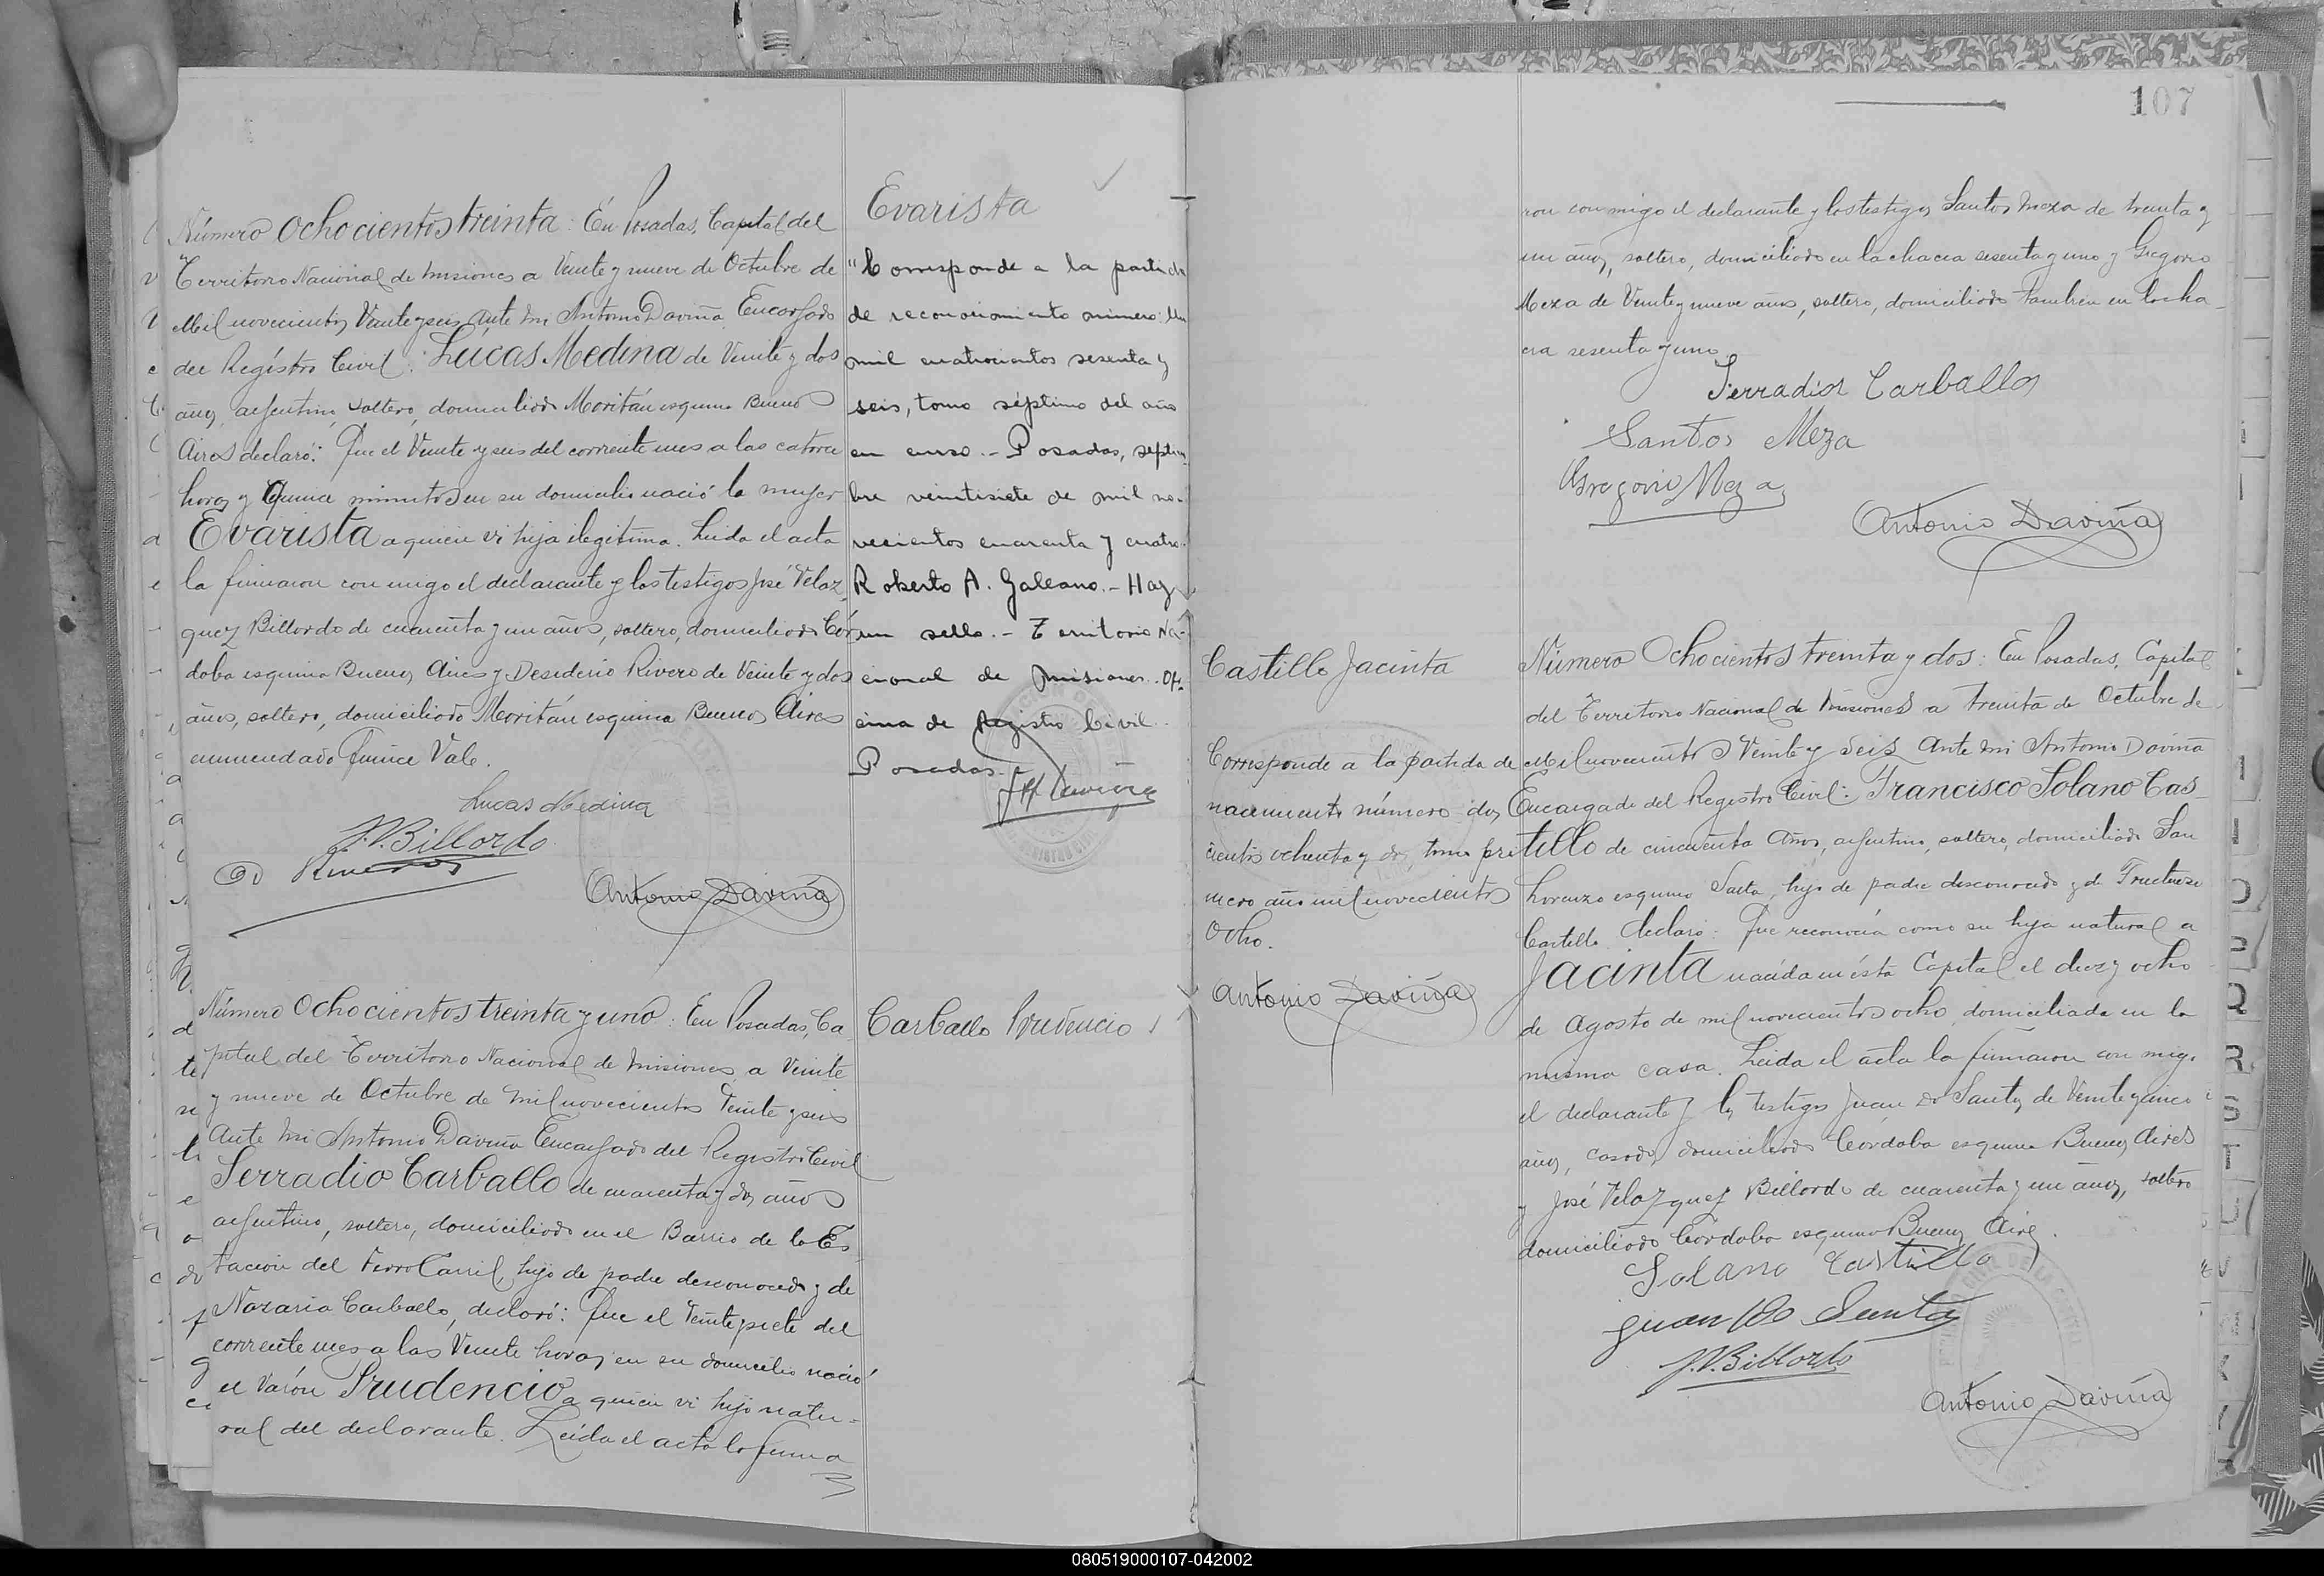 Número Ochocientos treinta: En Posadas, Capital del
Territorio Nacional de Misiones a Veinte y nueve de Octubre de
Mil novecientos Veinte y seis, ante mi Antonio Daviña Encargado
del Registro Civil: Lucas Medina de Veinte y dos
años, argentino, soltero, domiciliado Moritán esquina Buenos
Aires declaró: Que el Veinte y seis del corriente mes a las catorce
horas y Quince minutos en su domicilio nació la mujer
Evarista a quien vi hija ilegitima. Leida el acta
la firmaron con migo el declarante y los testigos José Velaz
quez Billordo de cuarenta y un años, soltero, domiciliado Cór
doba esquina Buenos Aires y Desiderio Rivero de Veinte y dos
años, soltero, domiciliado Moritán esquina Buenos Aires
enmendado Quince Vale.
Lucas Medina
J.V. Billordo
Antonio Daviña
Evarista
"Corresponde a la partida
de reconocimiento número: Un
mil cuatrocientos sesenta y
seis, tomo séptimo del año
en curso.- Posadas, septiem
bre veintisiete de mil no-
vecientos cuarenta y cuatro.
Roberto A. Galeano.- Hay
un sello.- Territorio Na-
cional de Misiones.- Ofi
cina de Registro Civil.-
Posadas.-
Número Ochocientos treinta y uno: En Posadas, Ca
pital del Territorio Nacional de Misiones a Veinte
y nueve de Octubre de Mil novecientos Veinte y seis
Ante mi Antonio Daviña Encargado del Registro Civil
Serradio Carballo de cuarenta y dos años
argentino, soltero, domiciliado en el Barrio de la Es
tación del Ferro Carril, hijo de padre desconocido y de
Nazaria Carballo, declaró: Que el Veinte y siete del
corriente mes a las Veinte horas en su domicilio nació
el Varón Prudencio a quien vi hijo natu-
ral del declarante. Leida el acta la firma
Carballo Prudencio
107
ron con migo el declarante y los testigos Santos Meza de treinta y
un años, soltero, domiciliado en la chacra sesenta y uno y Gregorio
Meza de Veinte y nueve años, soltero, domiciliado tambien en la cha-
cra sesenta y uno.
Serradior Carballo
Santos Meza
Gregorio Meza
Antonio Daviña
Castillo Jacinta
Corresponde a la partida de
nacimiento número dos
cientos ochenta y dos, tomo pri
mero año mil novecientos
Ocho.
Antonio Daviña
Número Ochocientos treinta y dos: En Posadas, Capital
del Territorio Nacional de Misiones a treinta de Octubre de
Mil novecientos Veinte y Seis, Ante mi Antonio Daviña
Encargado del Registro Civil: Francisco Solano Cas
tillo de cincuenta años, argentino, soltero, domiciliado San
Lorenzo esquina Salta, hijo de padre desconocido y de Fructuosa
Castillo declaró: Que reconocía como su hija natural a
Jacinta nacida en ésta Capital el diez y ocho
de Agosto de mil novecientos ocho, domiciliada en la
misma casa. Leida el acta la firmaron con migo
el declarante y los testigos Juan Do Santos de Veinte y cinco
años, casado, domiciliado Córdoba esquina Buenos Aires
y José Velazquez Billordo de cuarenta y un años, soltero
domiciliado Córdoba esquina Buenos Aires.
Solano Castillo
Juan Do Santos
J.V. Billordo
Antonio Daviña
080519000107-042002